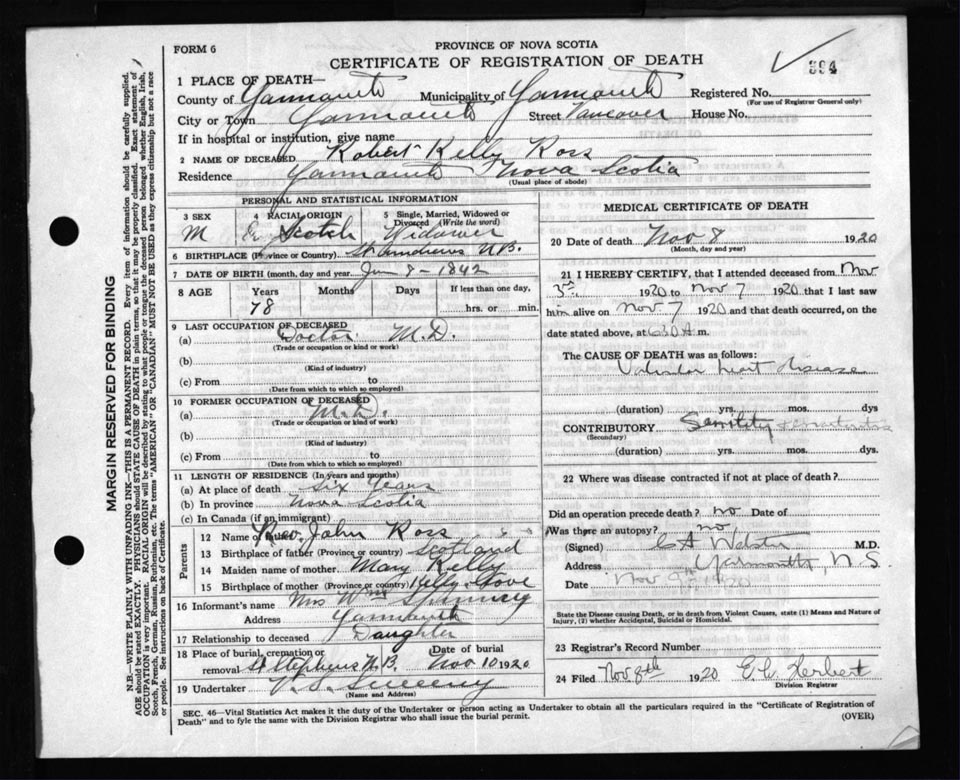 FORM 6
PROVINCE OF NOVA SCOTIA
CERTIFICATE OF REGISTRATION OF DEATH
994
1 PLACE OF DEATH—
County of Yarmouth Municipality of Yarmouth Registered No.
(For use of Registrar General only)
City or Town Yarmouth Street Vancouver House No.
If in hospital or institution, give name
2 NAME OF DECEASED Robert Kelly Ross
Residence Yarmouth Nova Scotia
(Usual place of abode)
PERSONAL AND STATISTICAL INFORMATION
3 SEX M
4 RACIAL ORIGIN Scotch
5 Single, Married, Widowed or Divorced (Write the word) Widower
6 BIRTHPLACE (Province or Country) St Andrews N.B.
7 DATE OF BIRTH (month, day and year) 8 - 1842
8 AGE Years Months Days If less than one day,
78 hrs. or min.
9 LAST OCCUPATION OF DECEASED
(a) Doctor M.D.
(Trade or occupation or kind or work)
(b)
(Kind of industry)
(c) From to
(Date from which to which so employed)
10 FORMER OCCUPATION OF DECEASED
(a) M.D.
(Trade or occupation or kind of work)
(b)
(Kind of industry)
(c) From to
(Date from which to which so employed)
11 LENGTH OF RESIDENCE (In years and months)
(a) At place of death Six Years
(b) In province Nova Scotia
(c) In Canada (if an immigrant)
Parents
12 Name of father Rev. John Ross
13 Birthplace of father (Province or country) Scotland
14 Maiden name of mother Mary Kelly
15 Birthplace of mother (Province or country) Kelly Cove
16 Informant's name Mrs Wm
Address Yarmouth
17 Relationship to deceased Daughter
18 Place of burial, cremation or removal St Stephens N.B. Date of burial Nov 10 1920
19 Undertaker V. S. Sweeny
(Name and Address)
MEDICAL CERTIFICATE OF DEATH
20 Date of death Nov 8 1920
(Month, day and year)
21 I HEREBY CERTIFY, that I attended deceased from Nov
3rd 1920 to Nov 7 1920 that I last saw
him alive on Nov. 7 1920 and that death occurred, on the
date stated above, at 6 30 A. m.
The CAUSE OF DEATH was as follows:
Valvular heart disease
(duration) yrs. mos. dys
CONTRIBUTORY Senility
(Secondary)
(duration) yrs. mos. dys.
22 Where was disease contracted if not at place of death?
Did an operation precede death? no Date of
Was there an autopsy? no
(Signed) C A Webster M.D.
Address Yarmouth, N.S.
Date Nov 9th 1920
State the Disease causing Death, or in death from Violent Causes, state (1) Means and Nature of
Injury, (2) whether Accidental, Suicidal or Homicidal.
23 Registrar's Record Number
24 Filed Nov 8th 1920 E. C. Herbert
Division Registrar
SEC. 46—Vital Statistics Act makes it the duty of the Undertaker or person acting as Undertaker to obtain all the particulars required in the "Certificate of Registration of
Death" and to fyle the same with the Division Registrar who shall issue the burial permit. (OVER)
MARGIN RESERVED FOR BINDING
N.B.—WRITE PLAINLY WITH UNFADING INK—THIS IS A PERMANENT RECORD. Every item of information should be carefully supplied.
AGE should be stated EXACTLY. PHYSICIANS should STATE CAUSE OF DEATH in plain terms, so that it may be properly classified. Exact statement of
OCCUPATION is very important. RACIAL ORIGIN will be described by stating to what people or tongue the deceased person belonged whether English, Irish,
Scotch, French, German, Russian, Ruthenian, etc. The terms "AMERICAN" OR "CANADIAN" MUST NOT BE USED as they express citizenship but not a race
or people. See instructions on back of Certificate.